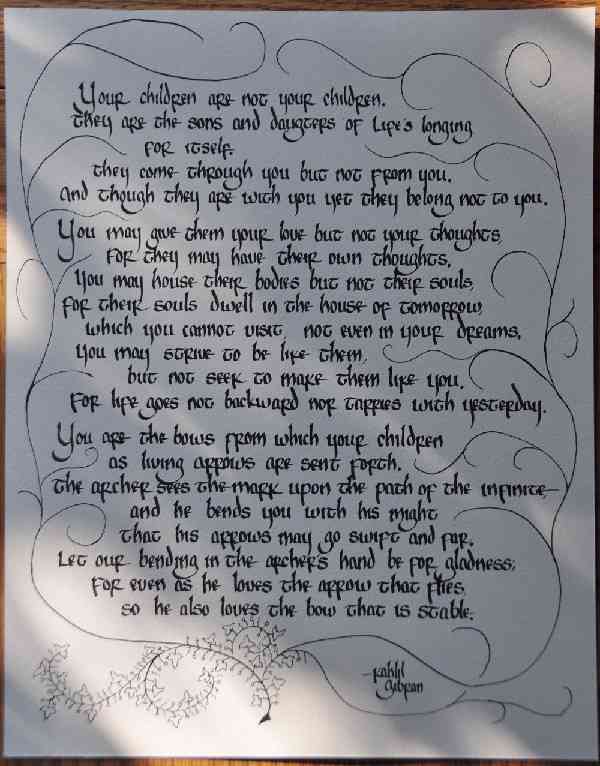 Your children are not your children.
They are the sons and daugters of Life's longing
for itself.
they come through you but not from you,
and though they are with you yet they belong not to you.
You may give them your love but not your thoughts,
for they may have their own thoughts.
You may house their bodies but not their souls,
for their souls dwell in the house of tomorrow,
which you cannot visit, not even in your dreams.
you may strive to be like them,
but not seek to make them like you.
For life goes not backward nor tarries with yesterday.
You are the bows from which your children
as living arrows are sent forth.
the archer sees the mark upon the path of the infinite
and he bends you with his might
that his arrows may go swift and far.
Let our bending in the archer's hand be for gladness;
for even as he loves the arrow that flies,
so he also loves the bow that is stable.
-Kahlil
Gibran